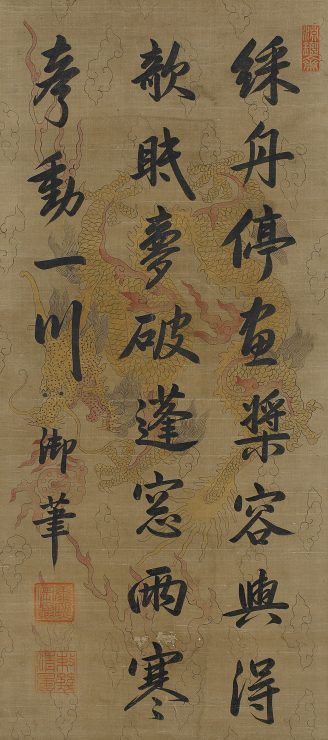 綵舟停畫槳容與得
欹眠夢破蓬窓雨寒
聲動一川 御筆